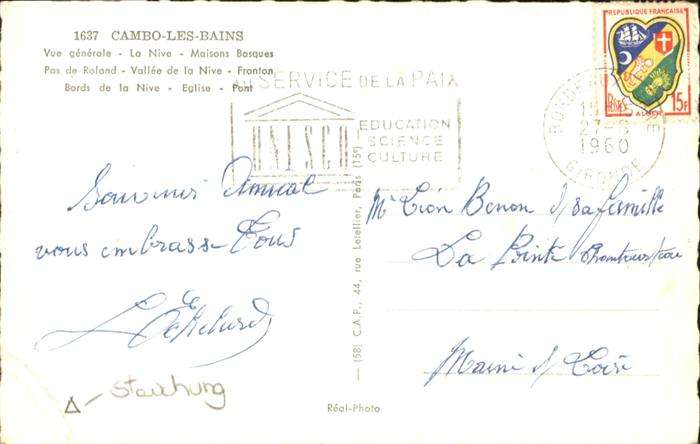 1637 CAMBO-LES-BAINS
Vue générale - La Nive - Maisons Basques
Pas de Roland - Vallée de la Nive - Fronton
Bords de la Nive - Eglise - Pont
AU SERVICE DE LA PAIX
UNESCO
EDUCATION
SCIENCE
CULTURE
REPUBLIQUE FRANÇAISE
POSTES
15F
ALGER
BORDEAUX
27-6
1960
GIRONDE
Souvenir Amical
vous embrasse Tous
Mr Léon Benon & sa famille
La Pointe
Maine & Loire
(58) C.A.P., 44, rue Letellier, Paris (15e)
Réal-Photo